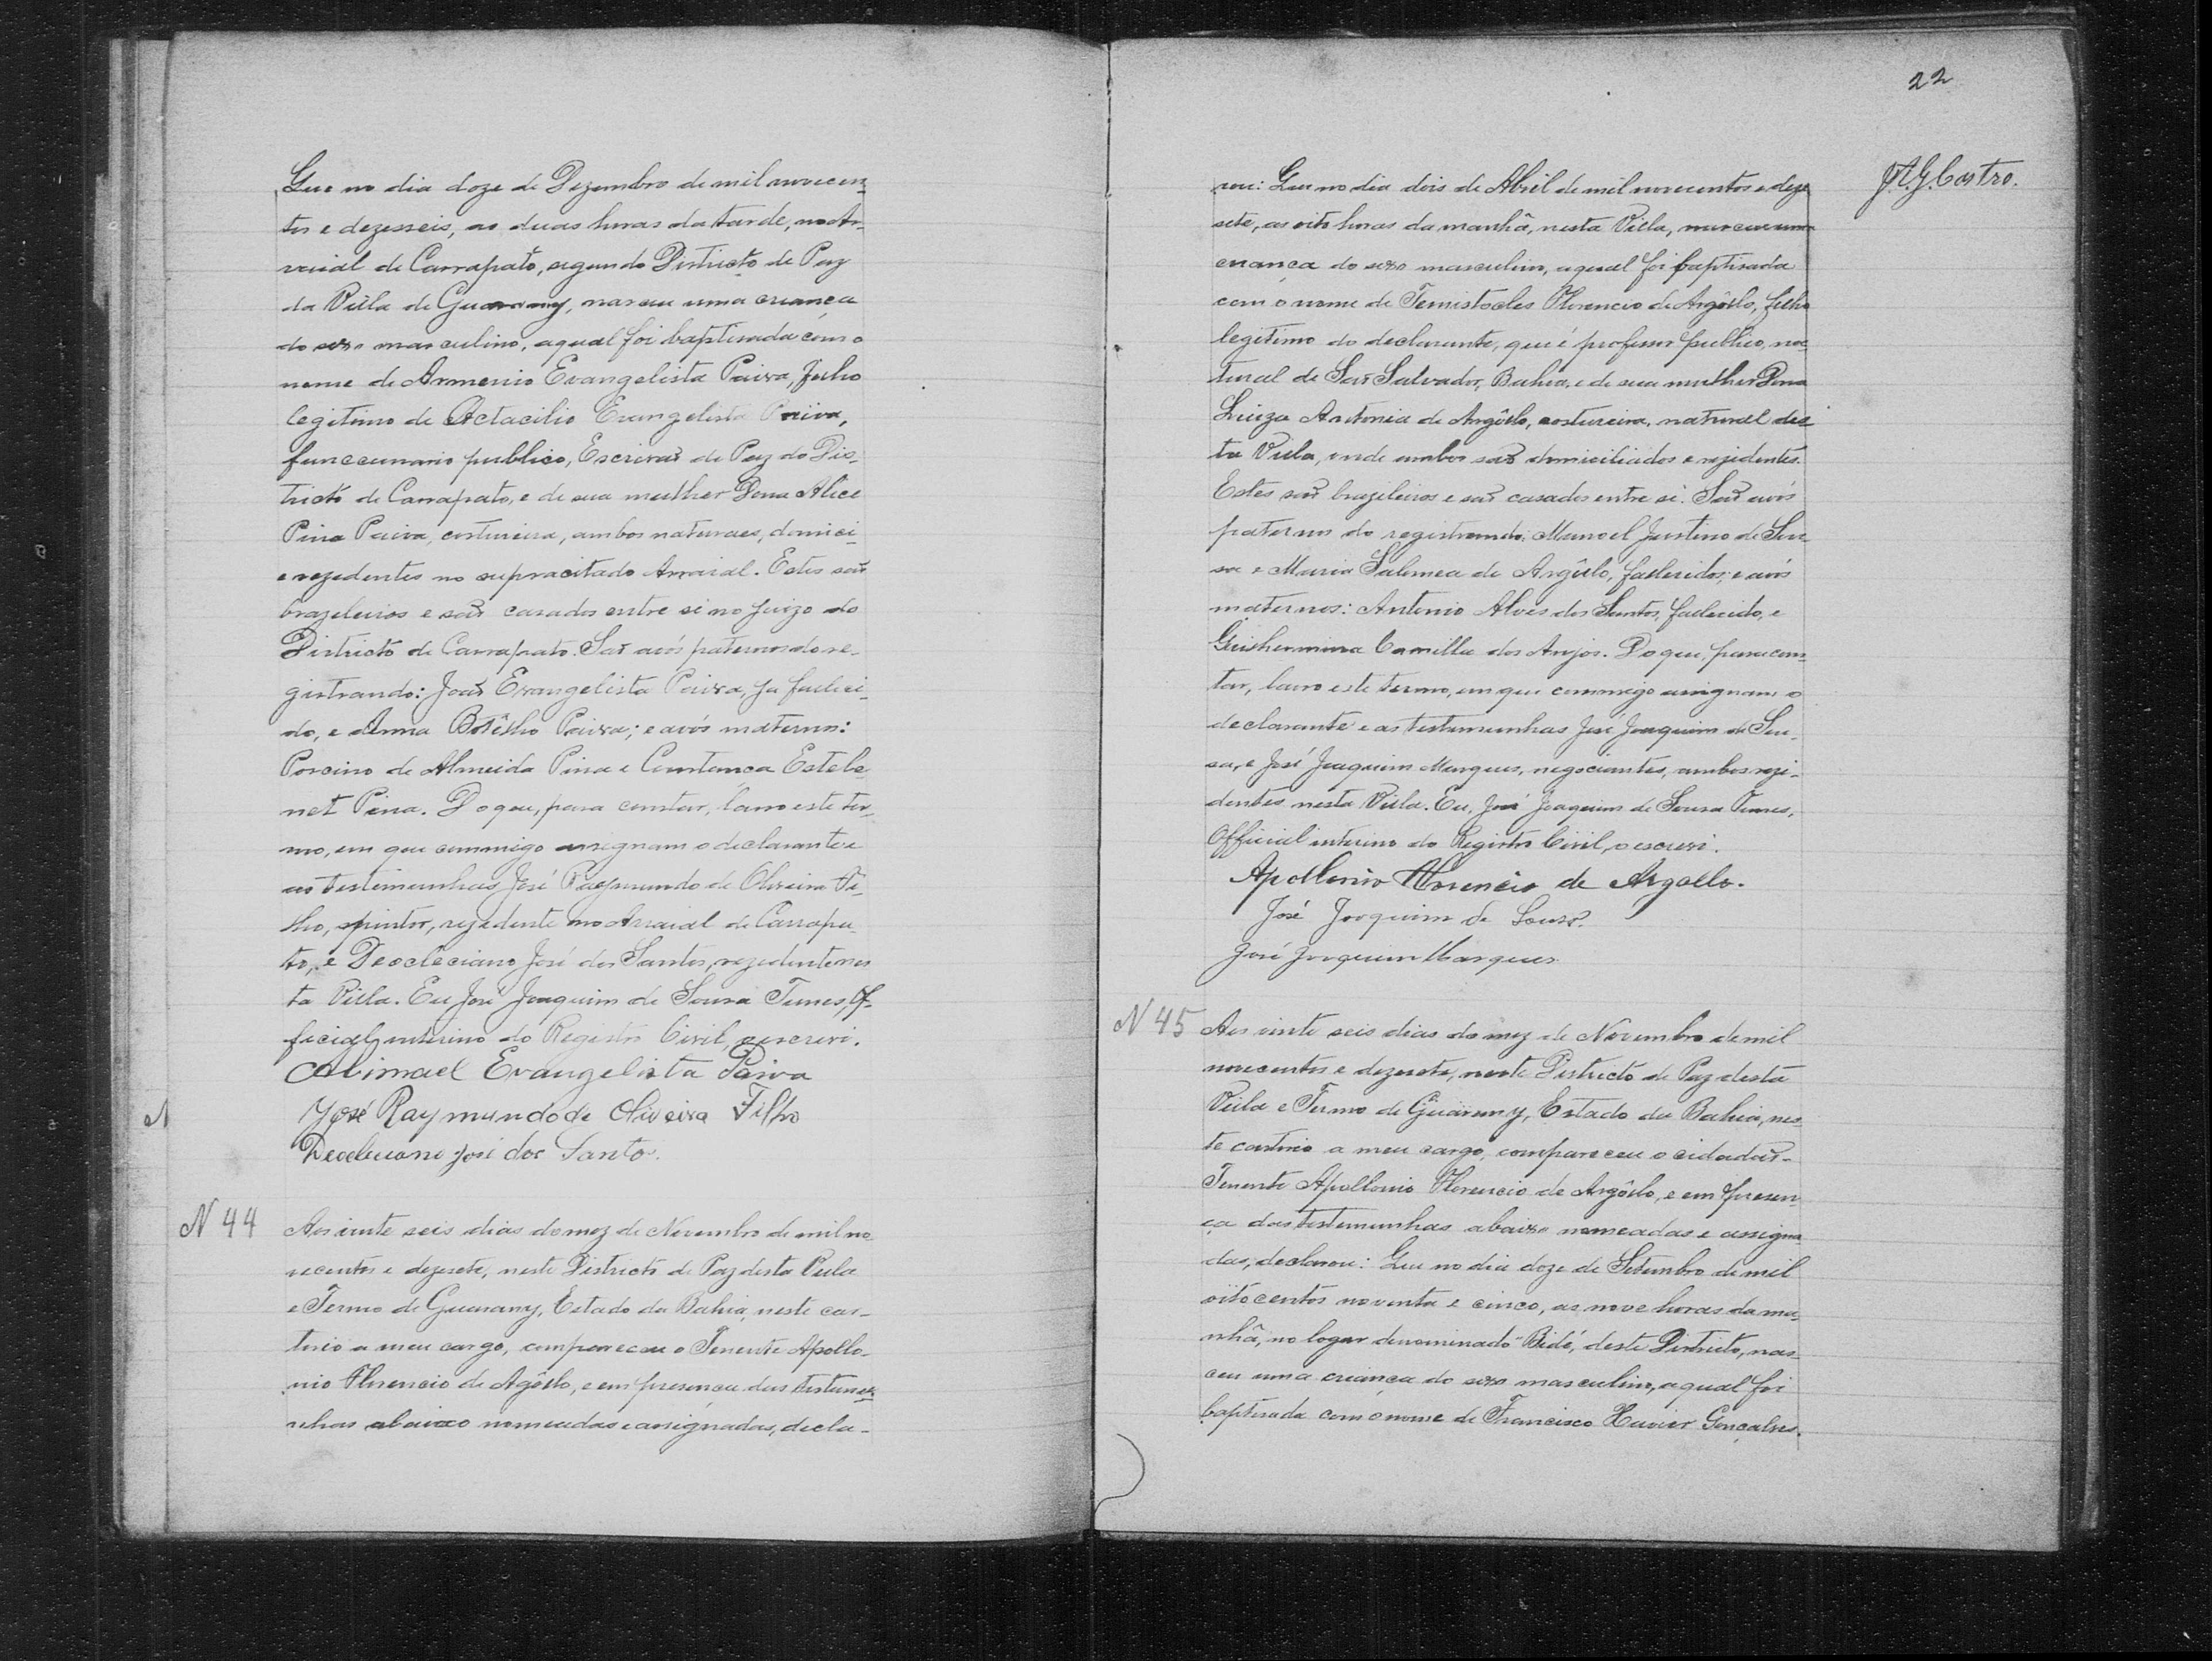 Que no dia doze de Dezembro de mil novecen-
tos e dezesseis, as duas horas da tarde, no Ar-
raial de Carrapato, segundo Districto de Paz
da Villa de Guarany, nasceu uma criança
do sexo masculino, a qual foi baptisada com o
nome de Armenio Evangelista Paiva, filho
legitimo de Octacilio Evangelista Paiva,
funccionario publico, Escrivão de Paz do Dis-
tricto de Carrapato, e de sua mulher Dona Alice
Pina Paiva, costureira, ambos naturaes, domici-
e rezedentes no supracitado Arraial. Estes são
brazileiros e são casados entre si no juizo do
Districto de Carrapato. São avós paternos do re-
gistrando: João Evangelista Paiva, ja falleci-
do, e Anna Botêlho Paiva; e avós maternos:
Porcino de Almeida Pina e Constança Estela
net Pina. Do que, para constar, lavro este ter-
mo, em que commigo assignam o declarante e
as testemunhas José Raymundo de Oliveira Fi-
lho, pintor, rezedente no Arraial de Carrapa-
to, e Deocleciano José dos Santos, rezedente nes
ta Villa. Eu José Joaquim de Sousa Tunes, Of-
ficial interino do Registro Civil, o escrevi.
Abimael Evangelista Paiva
José Raymundo de Oliveira Filho
Deocleciano José dos Santo
N 44 Aos vinte seis dias do mez de Novembro de mil no
vecentos e dezesete, neste Districto de Paz desta Villa
e Termo de Guarany, Estado da Bahia, neste car-
torio a meu cargo, compareceu o Tenente Apollo-
nio Florencio de Agôllo, e em presença das testemu-
nhas abaixo nomeadas e assignadas, decla-
22
J.A.G. Castro.
rou: Que no dia dois de Abril de mil novecentos e deze
sete, as oito horas da manhã, nesta Villa, nasceu uma
criança do sexo masculino, a qual foi baptisada
com o nome de Temistocles Florencio de Argôllo, filho
legitimo do declarante, que é professor publico, na-
tural de São Salvador, Bahia, e de sua mulher Dona
Luiza Antonia de Argôllo, costureira, natural des-
ta Villa, onde ambos são domiciliados e rezidentes.
Estes são brazileiros e são casados entre si. São avós
paternos do registrando: Manoel Justino de Sou
sa e Maria Salomea de Argôllo, fallecidos; e avós
maternos: Antonio Alves dos Santos, fallecido, e
Guilhermina Camilla dos Anjos. Do que, para cons
tar, lavro este termo, em que commigo assignam o
declarante e as testemunhas José Joaquim de Sou-
sa, e José Joaquim Marques, negociantes, ambos rezi-
dentes nesta Villa. Eu, José Joaquim de Sousa Tunes,
Official interino do Registro Civil, o escrevi.
Apollonio Florencio de Argollo.
José Joaquim de Souza.
José Joaquim Marques
N 45 Aos vinte seis dias do mez de Novembro de mil
novecentos e dezesete, neste Districto de Paz desta
Villa e Termo de Guarany, Estado da Bahia, nes
te cartorio a meu cargo, compareceu o cidadão-
Tenente Apollonio Florencio de Argôllo, e em presen
ça das testemunhas abaixo nomeadas e assigna
das, declarou: Que no dia doze de Setembro de mil
oitocentos noventa e cinco, as nove horas da ma-
nhã, no logar denominado "Bidé", deste Districto, nas-
ceu uma criança do sexo masculino, a qual foi
baptisada com o nome de Francisco Xavier Gonçalves.